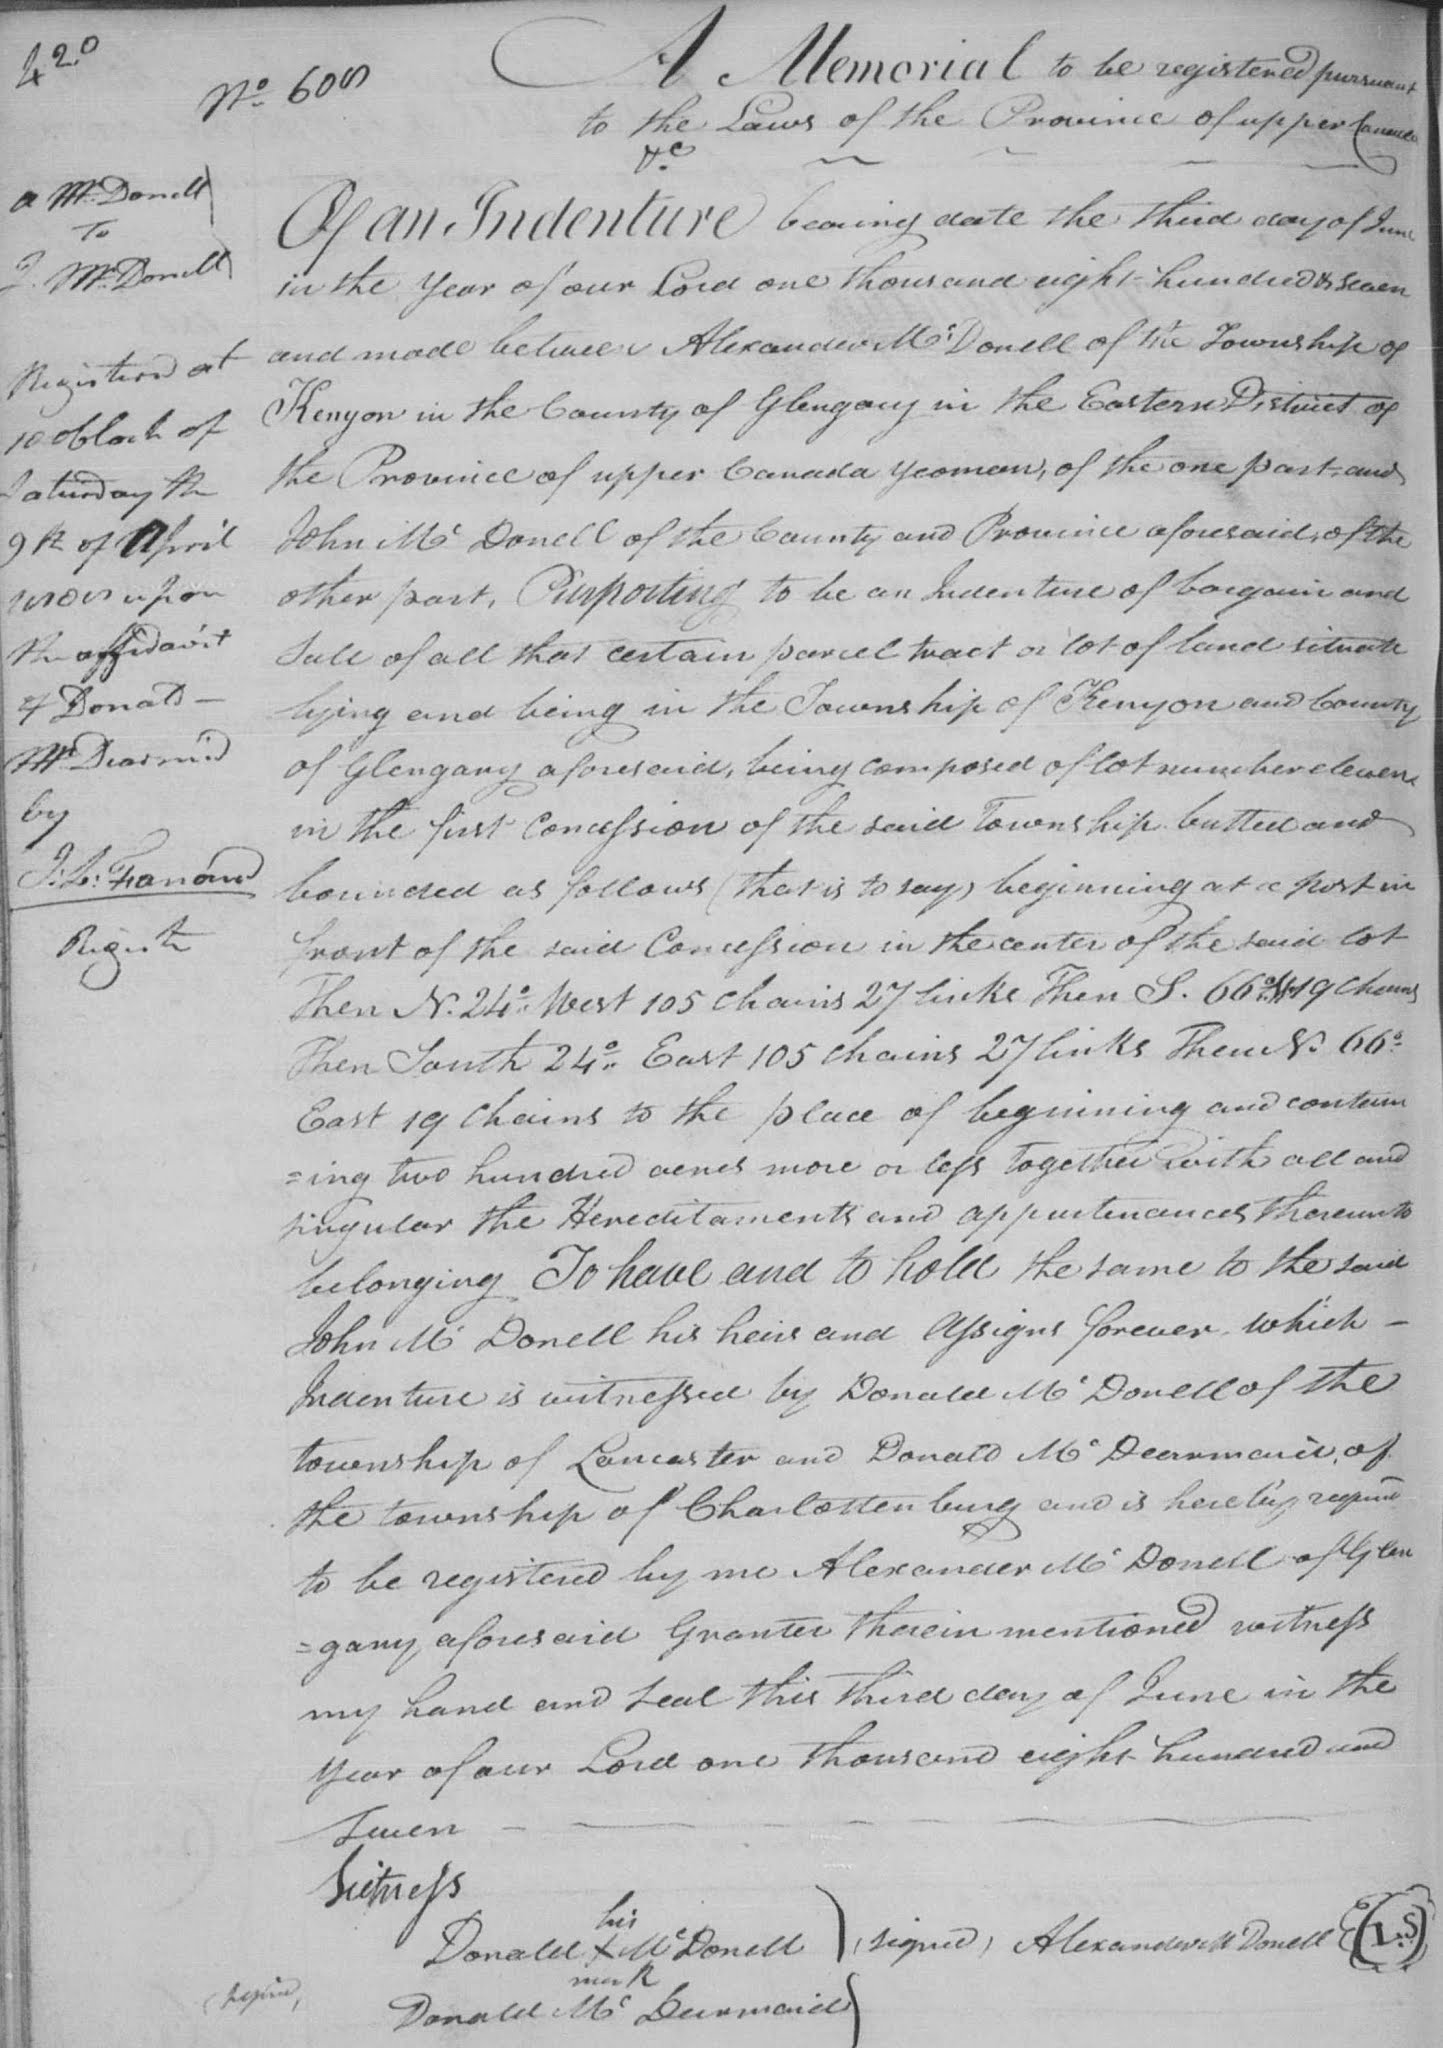 420
No. 608
A Memorial to be registered pursuant
to the Laws of the Province of upper Canada
&c
a McDonell
To
J. McDonell
Registered at
10 oClock of
Saturday the
9th of April
upon
the affidavit
of Donald
McDearmid
by
Registr
Of an Indenture bearing date the third day of June
in the Year of our Lord one thousand eight hundred & seven
and made between Alexander McDonell of the Township of
Kenyon in the County of Glengary in the Eastern District of
the Province of upper Canada yeoman, of the one part and
John Mc Donell of the County and Province aforesaid, of the
other part, Purporting to be an Indenture of bargain and
Sale of all that certain parcel tract or lot of land situate
lying and being in the Township of Kenyon and County
of Glengary aforesaid, being composed of lot number eleven
in the first Concession of the said Township butted and
bounded as follows (that is to say) beginning at a post in
front of the said Concession in the center of the said lot
Then N. 24° West 105 Chains 27 links Then S. 66° W 19 Chains
Then South 24° East 105 Chains 27 links Then N. 66°
East 19 Chains to the place of beginning and contain
=ing two hundred acres more or less together with all and
singular the Hereditaments and appurtenances thereunto
belonging To have and to hold the same to the said
John Mc Donell his heirs and Assigns forever which –
Indenture is witnessed by Donald Mc Donell of the
township of Lancaster and Donald Mc Dearmaid, of
the township of Charlottenburg and is hereby required
to be registered by me Alexander Mc Donell of Glen
=gary aforesaid Granter therein mentioned witness
my hand and seal this third day of June in the
Year of our Lord one thousand eight hundred and
Seven
Witness
his
Donald X McDonell (signed) Alexander McDonell L.S.
mark
(signed)
Donald Mc Dearmaid